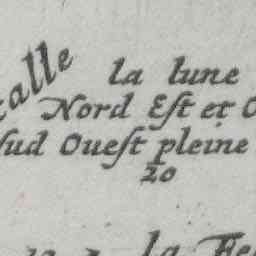 la lune
Nord Eſt et
ſud Oueſt pleine
20
la